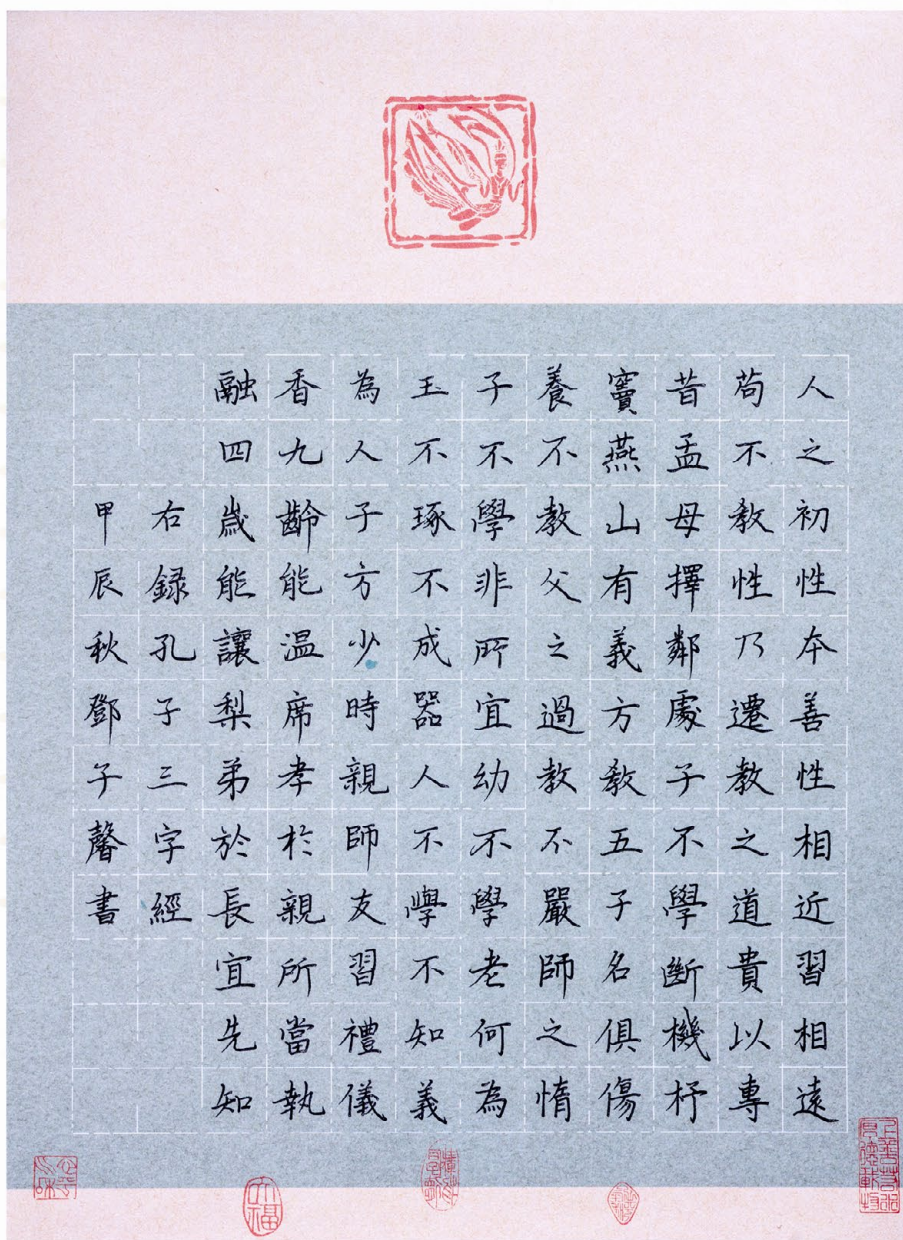 人之初性本善性相近習相遠
苟不教性乃遷教之道貴以專
昔孟母擇鄰處子不學斷機杼
竇燕山有義方教五子名俱傷
養不教父之過教不嚴師之惰
子不學非所宜幼不學老何為
玉不琢不成器人不學不知義
為人子方少時親師友習禮儀
香九齡能温席孝於親所當執
融四歲能讓梨弟於長宜先知
右錄孔子三字經
甲辰秋鄧子馨書
上善若水
厚德載物
大福